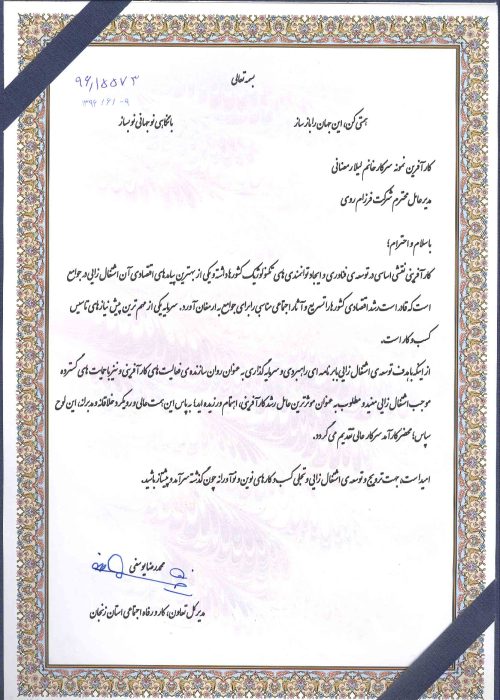 بسمه تعالی
۹۶/۱۵۵۷۳
۱۳۹۶/۶/۰۹
همتی کن، این جهان را باز ساز
با نگاهی نو جهانی نو بساز
کارآفرین نمونه سرکار خانم لیلا رمضانی
مدیرعامل محترم شرکت فرزام روی
با سلام و احترام؛
کارآفرینی نقشی اساسی در توسعه ی فناوری و ایجاد توانمندی های تکنولوژیک کشورها داشته و یکی از بهترین پیامدهای اقتصادی آن اشتغال زایی در جوامع
است که قادر است رشد اقتصادی کشورها را تسریع و آثار اجتماعی مناسبی را برای جوامع به ارمغان آورد. سرمایه یکی از مهم ترین پیش نیازهای تاسیس
کسب و کار است.
از اینکه با هدف توسعه ی اشتغال زایی با برنامه ای راهبردی و سرمایه گذاری به عنوان روان سازنده ی فعالیت های کارآفرینی و نیز با حمایت های گسترده
موجب اشتغال زایی مفید و مطلوب به عنوان موثرترین عامل رشد کارآفرینی، اهتمام ورزیده اید؛ به پاس این همت عالی و رویکرد خلاقانه و مدبرانه، این لوح
سپاس؛ محضر کارآمد سرکار عالی تقدیم می گردد.
امید است، جهت ترویج و توسعه ی اشتغال زایی و تجلی کسب و کارهای نوین و نوآورانه چون گذشته سرآمد و پیشتاز باشید.
محمدرضا یوسفی
مدیرکل تعاون، کار و رفاه اجتماعی استان زنجان